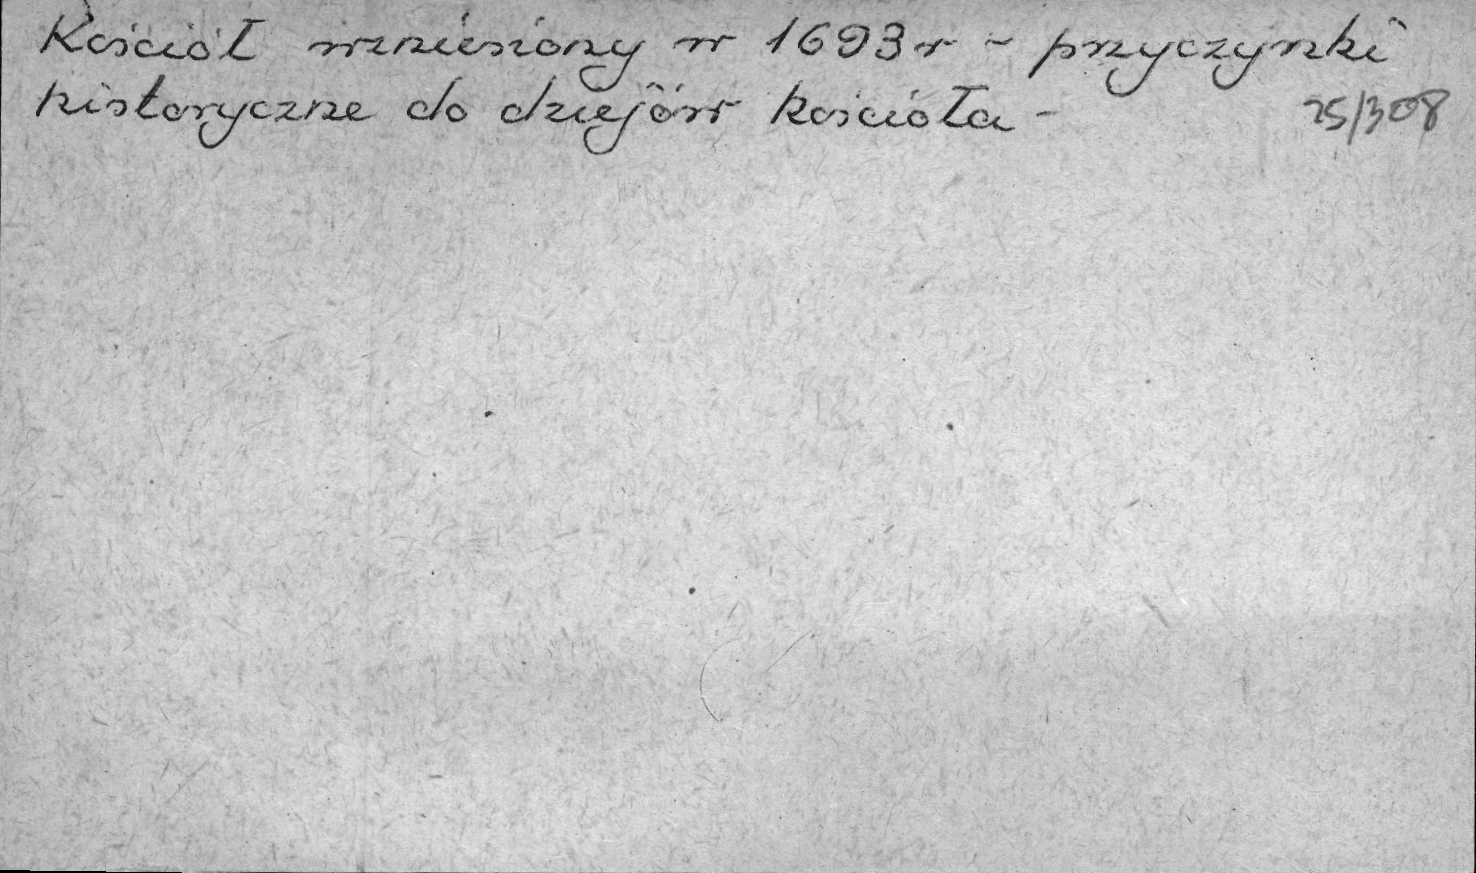 Kościół wzniesiony w 1693 r - przyczynki
historyczne do dziejów kościoła - 25/308